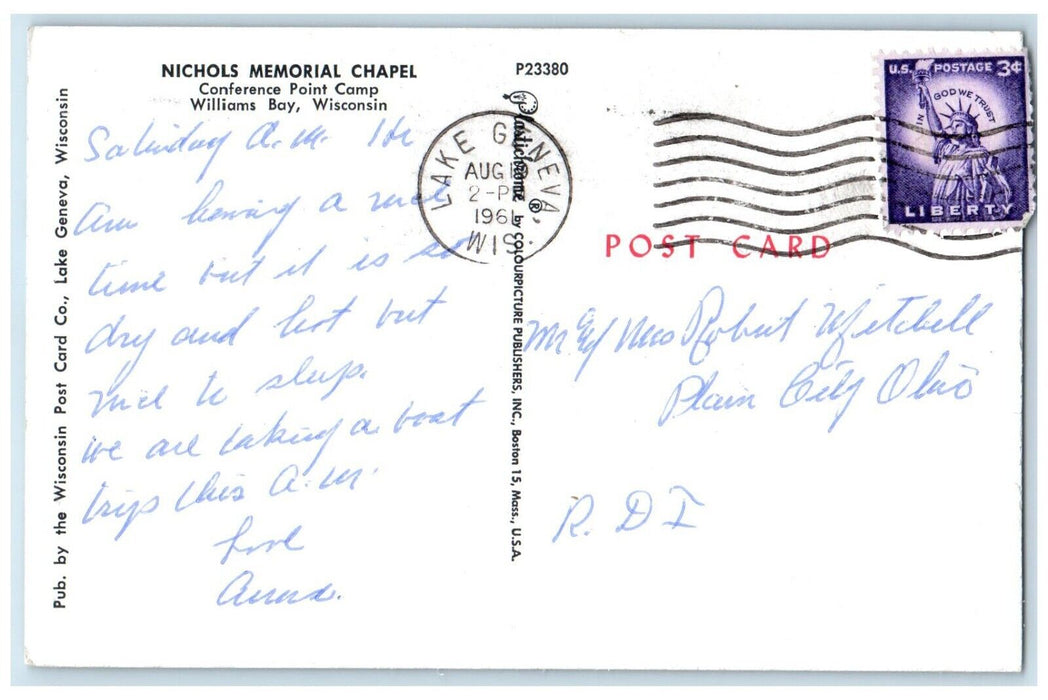 NICHOLS MEMORIAL CHAPEL
Conference Point Camp
Williams Bay, Wisconsin
Saturday A.M.
am having a nice
time but it is so
dry and hot but
nice to sleep.
we are taking a boat
trip this A.M.
Love
Pub. by the Wisconsin Post Card Co., Lake Geneva, Wisconsin
P23380
Plastichrome ® by COLOURPICTURE PUBLISHERS, INC., Boston 15, Mass., U.S.A.
LAKE GENEVA,
AUG
2-P
1961
WIS.
U.S. POSTAGE 3¢
IN GOD WE TRUST
LIBERTY
POST CARD
Mr & Mrs Robert Mitchell
Plain City Ohio
R. D I